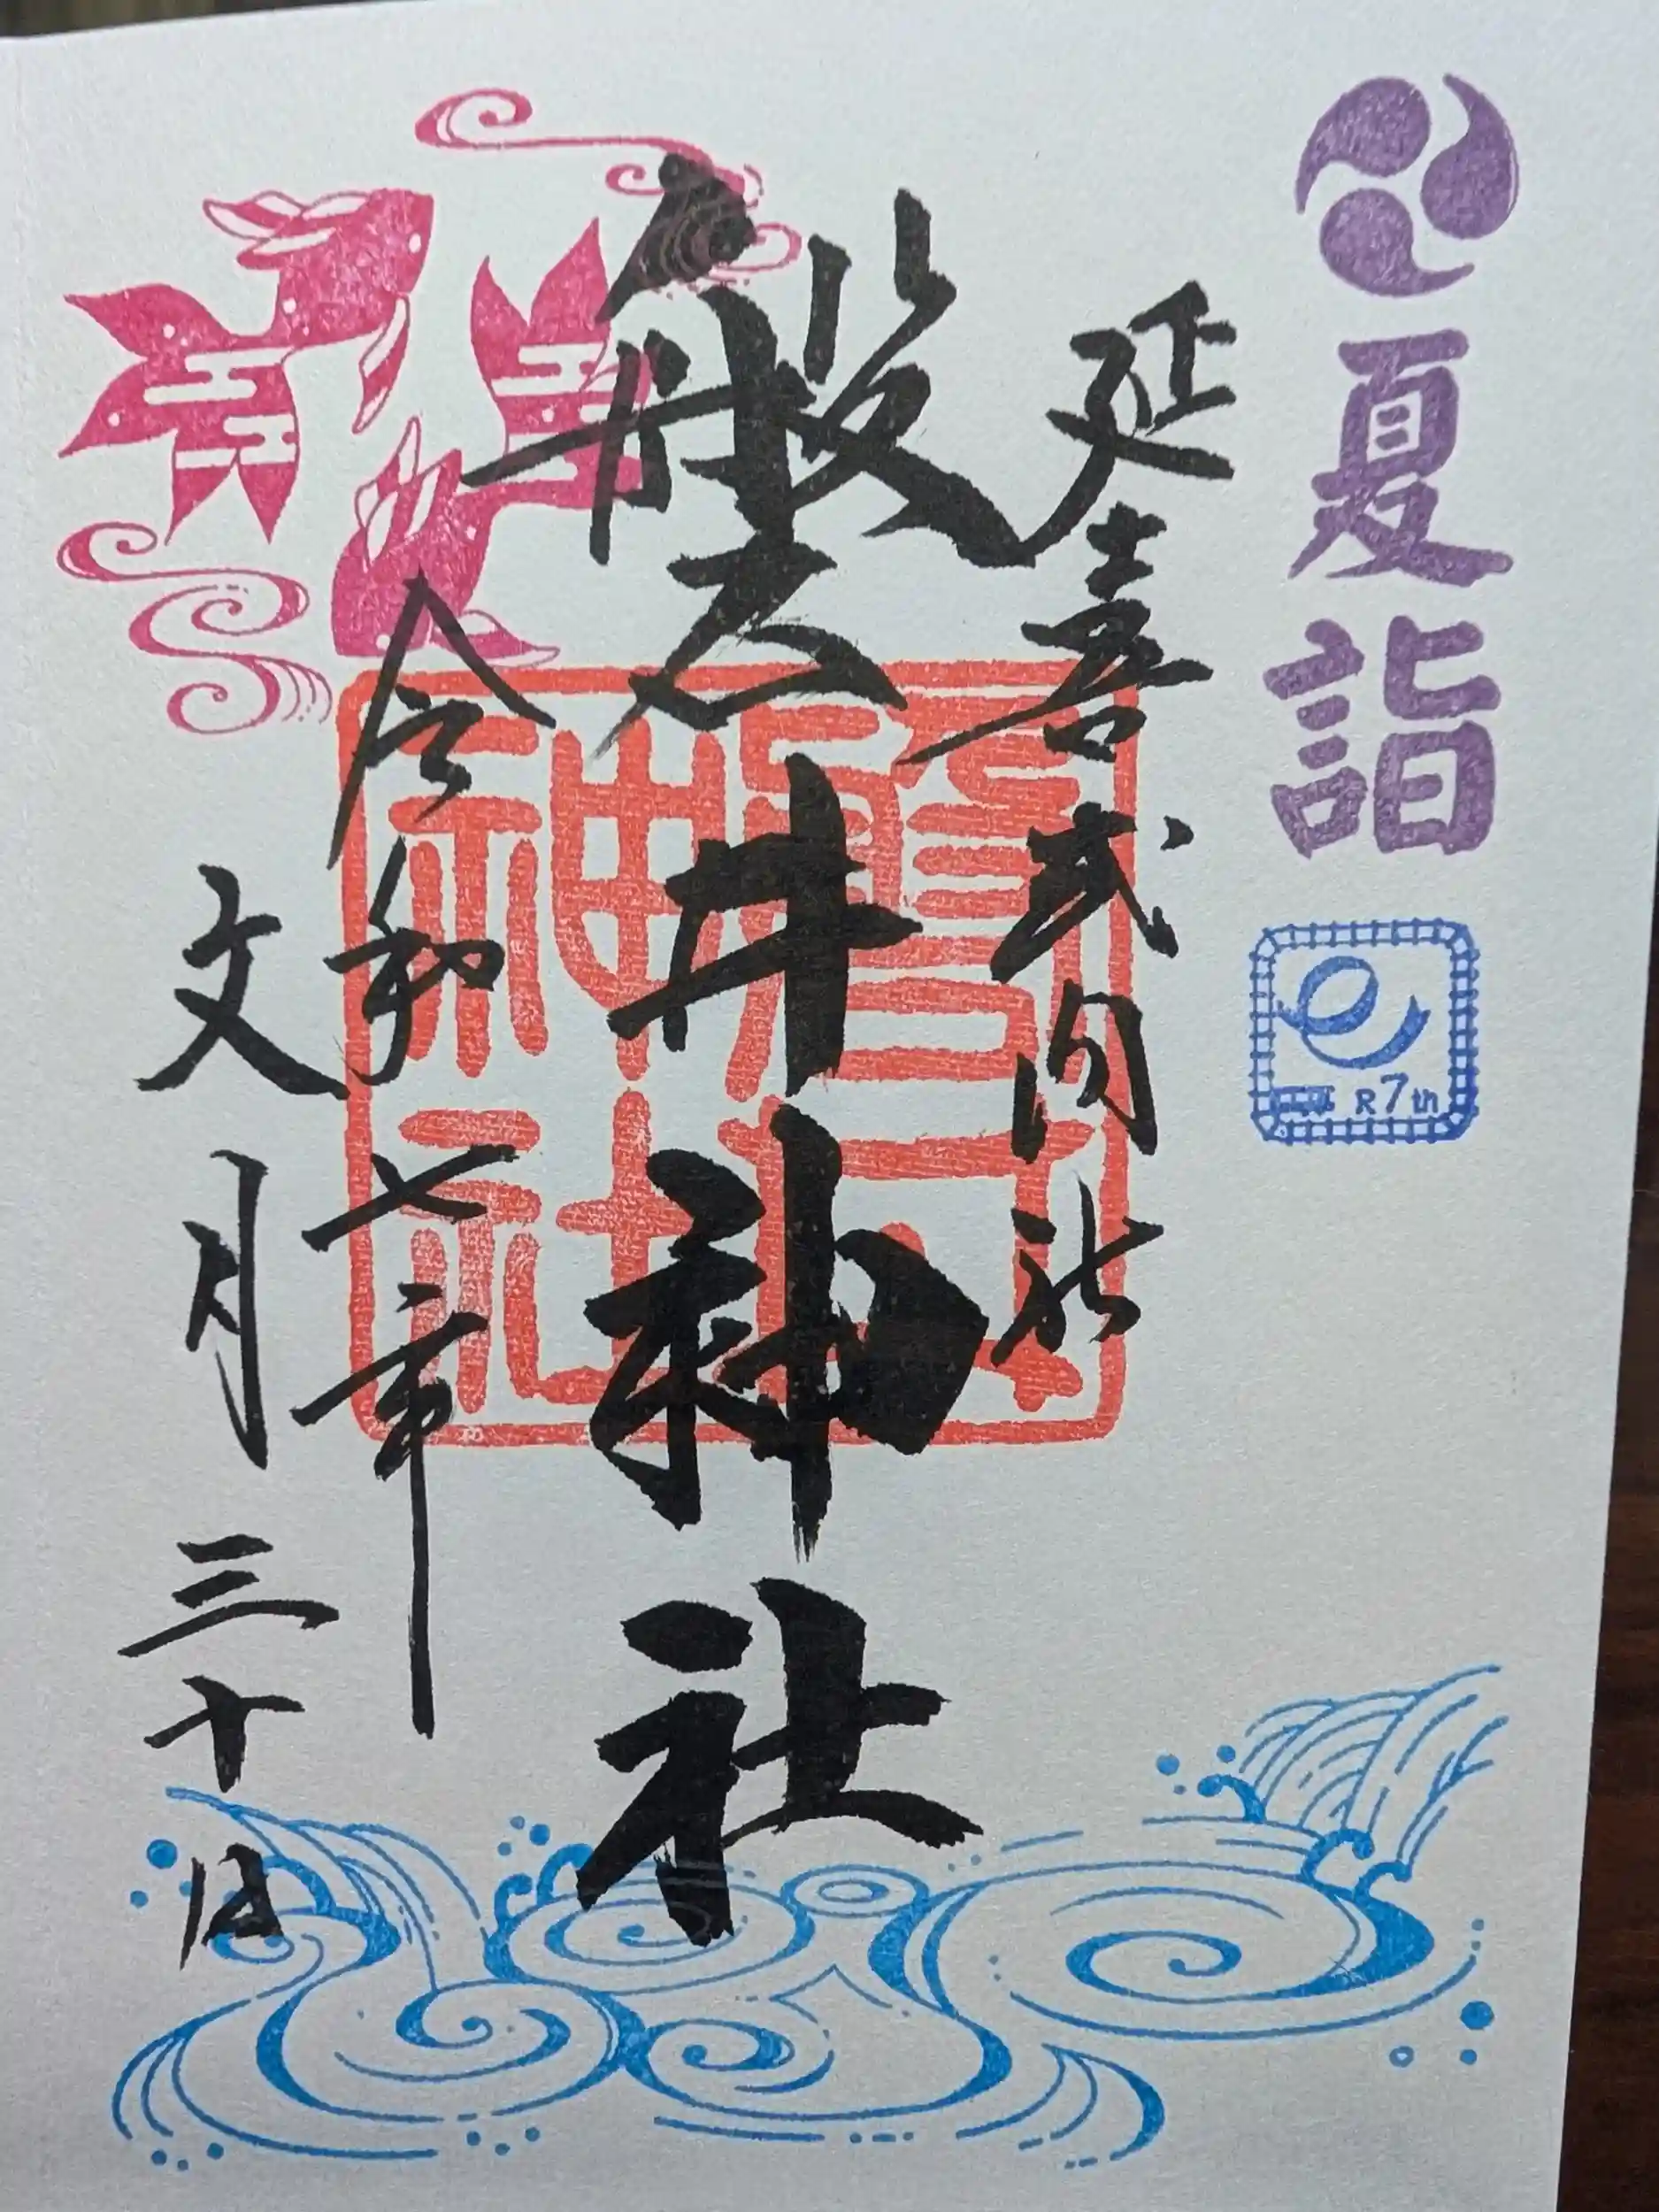 夏詣
R7th
延喜式内社
磐井神社
令和七年
文月三十日
磐井
神社